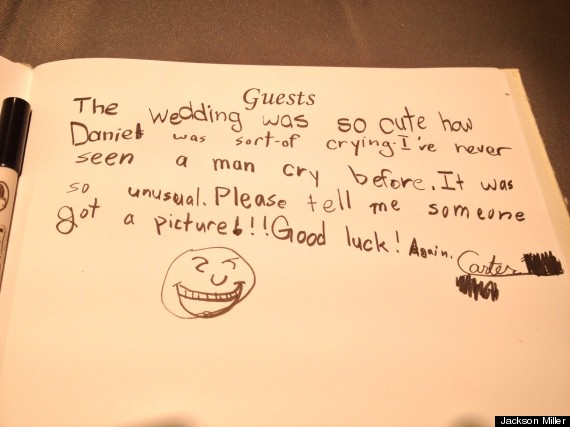 Guests
The wedding was so cute how
Daniel was sort-of crying. I've never
seen a man cry before. It was
so unusual. Please tell me someone
got a picture!!! Good luck! Again. Carter
Jackson Miller